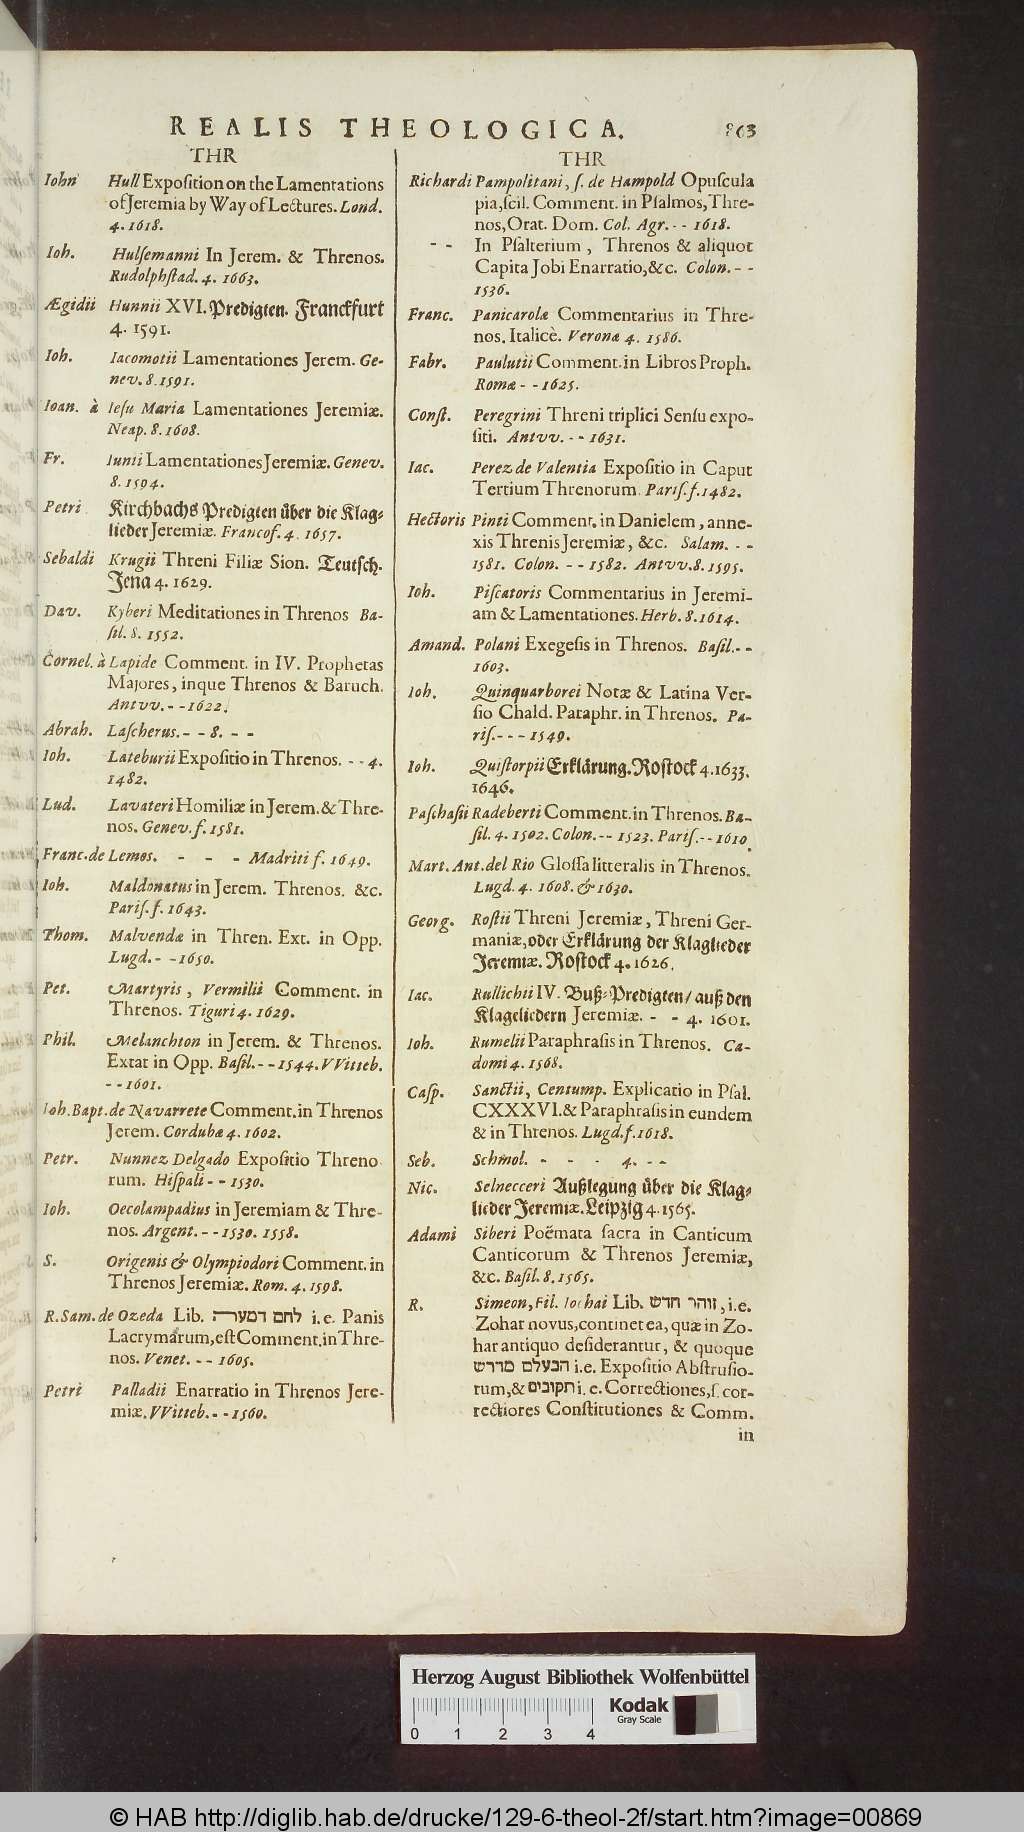 REALIS THEOLOGICA. 863
THR
Iohn Hull Expoſition on the Lamentations
of Jeremia by Way of Lectures. Lond.
4. 1618.
Ioh. Hulſemanni In Jerem. & Threnos.
Rudolphſtad. 4. 1663.
Ægidii Hunnii XVI. Predigten. Franckfurt
4. 1591.
Ioh. Iacomotii Lamentationes Jerem. Ge-
nev. 8. 1591.
Ioan. à Ieſu Maria Lamentationes Jeremiæ.
Neap. 8. 1608.
Fr. Iunii Lamentationes Jeremiæ. Genev.
8. 1594.
Petri Kirchbachs Predigten über die Klag-
lieder Jeremiæ. Francof. 4. 1657.
Sebaldi Krugii Threni Filiæ Sion. Teutſch.
Jena 4. 1629.
Dav. Kyberi Meditationes in Threnos Ba-
ſil. 8. 1552.
Cornel. à Lapide Comment. in IV. Prophetas
Majores, inque Threnos & Baruch.
Antvv. - - 1622.
Abrah. Laſcherus. - - 8. - -
Ioh. Lateburii Expoſitio in Threnos. - - 4.
1482.
Lud. Lavateri Homiliæ in Jerem. & Thre-
nos. Genev. f. 1581.
Franc. de Lemos. - - - Madriti f. 1649.
Ioh. Maldonatus in Jerem. Threnos. &c.
Pariſ. f. 1643.
Thom. Malvendæ in Thren. Ext. in Opp.
Lugd. - - 1650.
Pet. Martyris, Vermilii Comment. in
Threnos. Tiguri 4. 1629.
Phil. Melanchton in Jerem. & Threnos.
Extat in Opp. Baſil. - - 1544. VVitteb.
- - 1601.
Ioh. Bapt. de Navarrete Comment. in Threnos
Jerem. Cordubæ 4. 1602.
Petr. Nunnez Delgado Expoſitio Threno
rum. Hiſpali - - 1530.
Ioh. Oecolampadius in Jeremiam & Thre-
nos. Argent. - - 1530. 1558.
S. Origenis & Olympiodori Comment. in
Threnos Jeremiæ. Rom. 4. 1598.
R. Sam. de Ozeda Lib. לחם דמערה i. e. Panis
Lacrymarum, eſt Comment. in Thre-
nos. Venet. - - 1605.
Petri Palladii Enarratio in Threnos Jere-
miæ. VVitteb. - - 1560.
THR
Richardi Pampolitani, ſ. de Hampold Opuſcula
pia, ſcil. Comment. in Pſalmos, Thre-
nos, Orat. Dom. Col. Agr. - - 1618.
- - In Pſalterium, Threnos & aliquot
Capita Jobi Enarratio, &c. Colon. - -
1536.
Franc. Panicarolæ Commentarius in Thre-
nos. Italicè. Veronæ 4. 1586.
Fabr. Paulutii Comment. in Libros Proph.
Romæ - - 1625.
Conſt. Peregrini Threni triplici Senſu expo-
ſiti. Antvv. - - 1631.
Iac. Perez de Valentia Expoſitio in Caput
Tertium Threnorum. Pariſ. f. 1482.
Hectoris Pinti Comment. in Danielem, anne-
xis Threnis Jeremiæ, &c. Salam. - -
1581. Colon. - - 1582. Antvv. 8. 1595.
Ioh. Piſcatoris Commentarius in Jeremi-
am & Lamentationes. Herb. 8. 1614.
Amand. Polani Exegeſis in Threnos. Baſil. - -
1603.
Ioh. Quinquarborei Notæ & Latina Ver-
ſio Chald. Paraphr. in Threnos. Pa-
riſ. - - - 1549.
Ioh. Quiſtorpii Erklärung. Roſtock 4. 1633.
1646.
Paſchaſii Radeberti Comment. in Threnos. Ba-
ſil. 4. 1502. Colon. - - 1523. Pariſ. - - 1610.
Mart. Ant. del Rio Gloſſa litteralis in Threnos.
Lugd. 4. 1608. & 1630.
Georg. Roſtii Threni Jeremiæ, Threni Ger-
maniæ, oder Erklärung der Klaglieder
Jeremiæ. Roſtock 4. 1626.
Iac. Rullichii IV. Buß-Predigten / auß den
Klageliedern Jeremiæ. - - 4. 1601.
Ioh. Rumelii Paraphraſis in Threnos. Ca-
domi 4. 1568.
Caſp. Sanctii, Centump. Explicatio in Pſal.
CXXXVI. & Paraphraſis in eundem
& in Threnos. Lugd. f. 1618.
Seb. Schmol. - - - 4. - -
Nic. Selnecceri Außlegung über die Klag-
lieder Jeremiæ. Leipzig 4. 1565.
Adami Siberi Poëmata ſacra in Canticum
Canticorum & Threnos Jeremiæ,
&c. Baſil. 8. 1565.
R. Simeon, Fil. Jochai Lib. זוהר חדש, i. e.
Zohar novus, continet ea, quæ in Zo-
har antiquo deſiderantur, & quoque
הבעלם מדרש i. e. Expoſitio Abſtruſio-
rum, & תקובים i. e. Correctiones, ſ. cor-
rectiores Conſtitutiones & Comm.
in
Herzog August Bibliothek Wolfenbüttel
0 1 2 3 4
Kodak
Gray Scale
© HAB http://diglib.hab.de/drucke/129-6-theol-2f/start.htm?image=00869